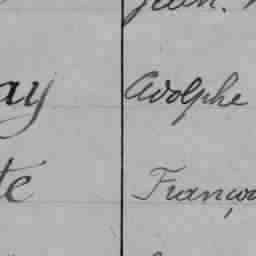 Jean.
ay Adolphe
te Franço